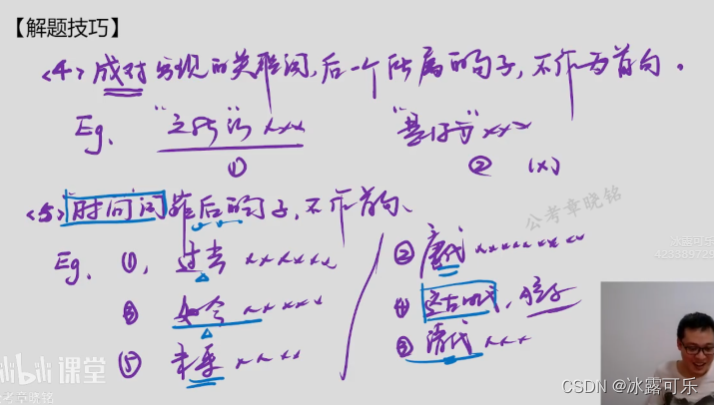 【解题技巧】
<4> 成对出现的关联词,后一个所属的句子,不作为首句。
Eg、 "之所以" ××× "是因为" ×××
① ② (×)
<5> 时间词靠后的句子,不作首句、
Eg、 ①、 过去 ×××××× ② 唐代 ××××××××
③ 如今 ××××× ④ 时代,
⑤ 未来 ×××× ③ 清代 ×××
公考章晓铭
bilibili 课堂
考章晓铭
CSDN @冰露可乐